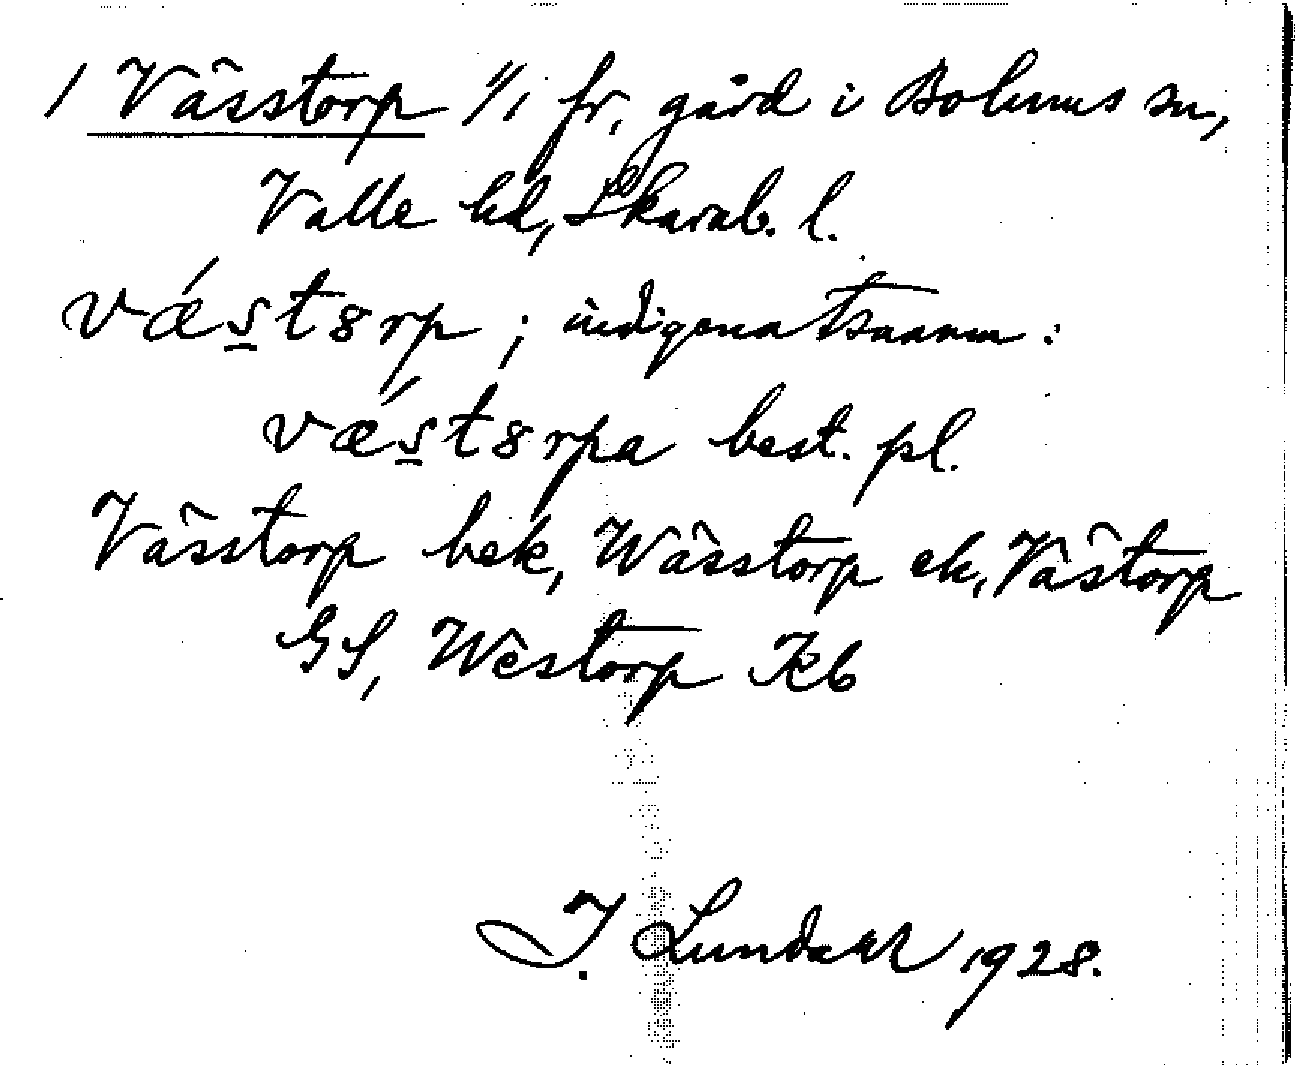 / Vässtorp 1/1 fr, gård i Bolums sn,
Valle hd, Skarab. l.
vǽstȣrp ; indigenatsnamn :
vǽstȣrpa best. pl.
Vässtorp bek, Wässtorp ek, Västorp
GS, Westorp Kb
I. Lundahl 1928.